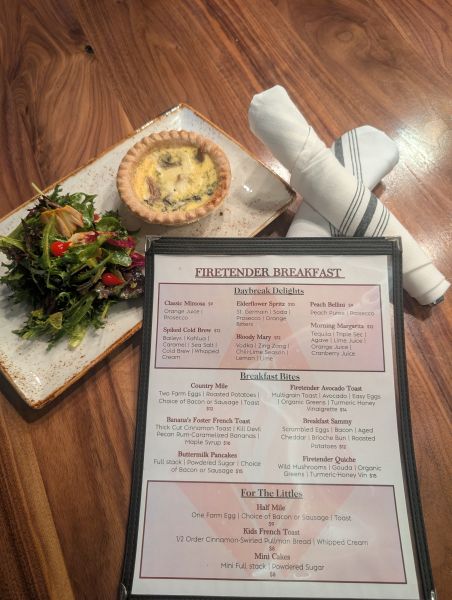 FIRETENDER BREAKFAST
Daybreak Delights
Classic Mimosa $9
Orange Juice |
Prosecco
Elderflower Spritz $10
St. Germain | Soda |
Prosecco | Orange
Bitters
Peach Bellini $9
Peach Puree | Prosecco
Spiked Cold Brew $12
Baileys | Kahlua |
Caramel | Sea Salt |
Cold Brew | Whipped
Cream
Bloody Mary $12
Vodka | Zing Zang |
Chili-Lime Season |
Lemon | Lime
Morning Margarita $12
Tequila | Triple Sec |
Agave | Lime Juice |
Orange Juice |
Cranberry Juice
Breakfast Bites
Country Mile
Two Farm Eggs | Roasted Potatoes |
Choice of Bacon or Sausage | Toast
$12
Firetender Avocado Toast
Multigrain Toast | Avocado | Easy Eggs
| Organic Greens | Turmeric Honey
Vinaigrette $14
Banana's Foster French Toast
Thick Cut Cinnamon Toast | Kill Devil
Pecan Rum-Caramelized Bananas |
Maple Syrup $16
Breakfast Sammy
Scrambled Eggs | Bacon | Aged
Cheddar | Brioche Bun | Roasted
Potatoes $12
Buttermilk Pancakes
Full stack | Powdered Sugar | Choice
of Bacon or Sausage $15
Firetender Quiche
Wild Mushrooms | Gouda | Organic
Greens | Turmeric-Honey Vin $15
For The Littles
Half Mile
One Farm Egg | Choice of Bacon or Sausage | Toast
$9
Kids French Toast
1/2 Order Cinnamon-Swirled Pullman Bread | Whipped Cream
$8
Mini Cakes
Mini Full stack | Powdered Sugar
$8